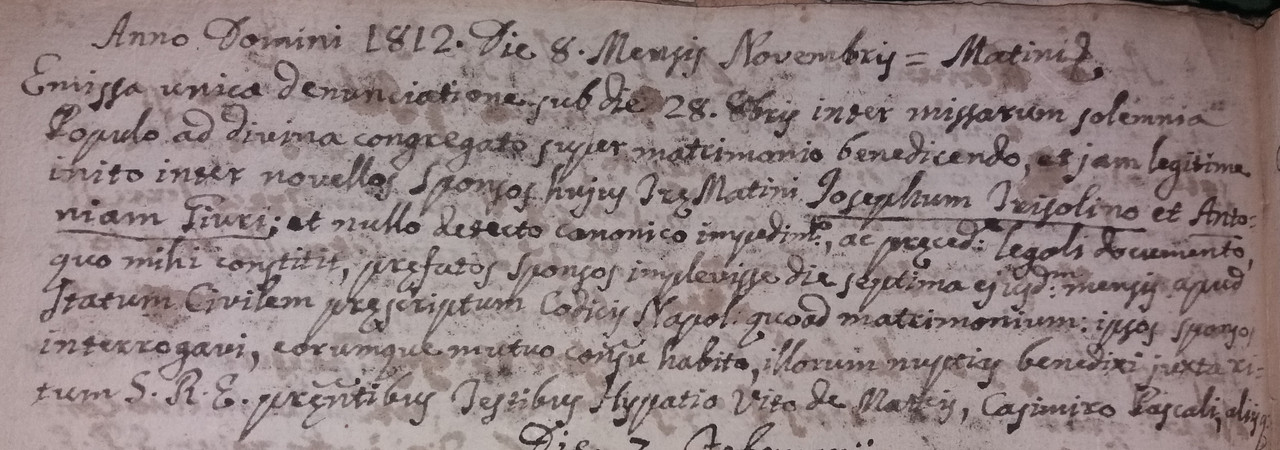 Anno Domini 1812. Die 8. Mensis Novembris = Matini
Emissa unica denunciatione sub die 28. 8bris inter missarum solemnia
Populo ad divina congregato super matrimonio benedicendo, et jam legitime
inito inter novellos Sponsos hujus Træ Matini Josephum Trisolino et Anto:
niam Fiuri; et nullo detecto canonico impedimto, ac præced: legali documento,
quo mihi constitit, præfatos Sponsos implevisse die septima ejusd:m mensis apud
Statum Civilem præscriptum Codicis Napol. quoad matrimonium: ipsos sponsos
interrogavi, eorumque mutuo consu habito, illorum nuptiis benedixi juxta ri-
tum S. R. E. præntibus Testibus Hypatio Vito de Marcis, Casimiro Pascali, aliisq.
Die